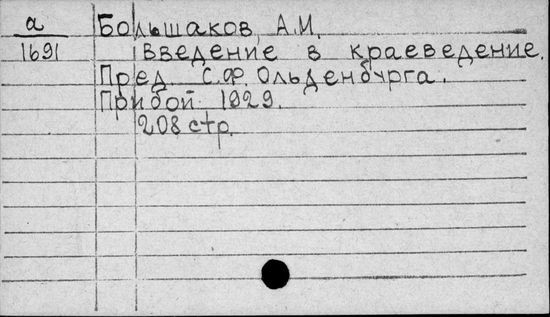 а
1691
Большаков, А.М.
Введение в краеведение.
Пред. С.Ф. Ольденбурга.
Прибой 1929.
208 стр.